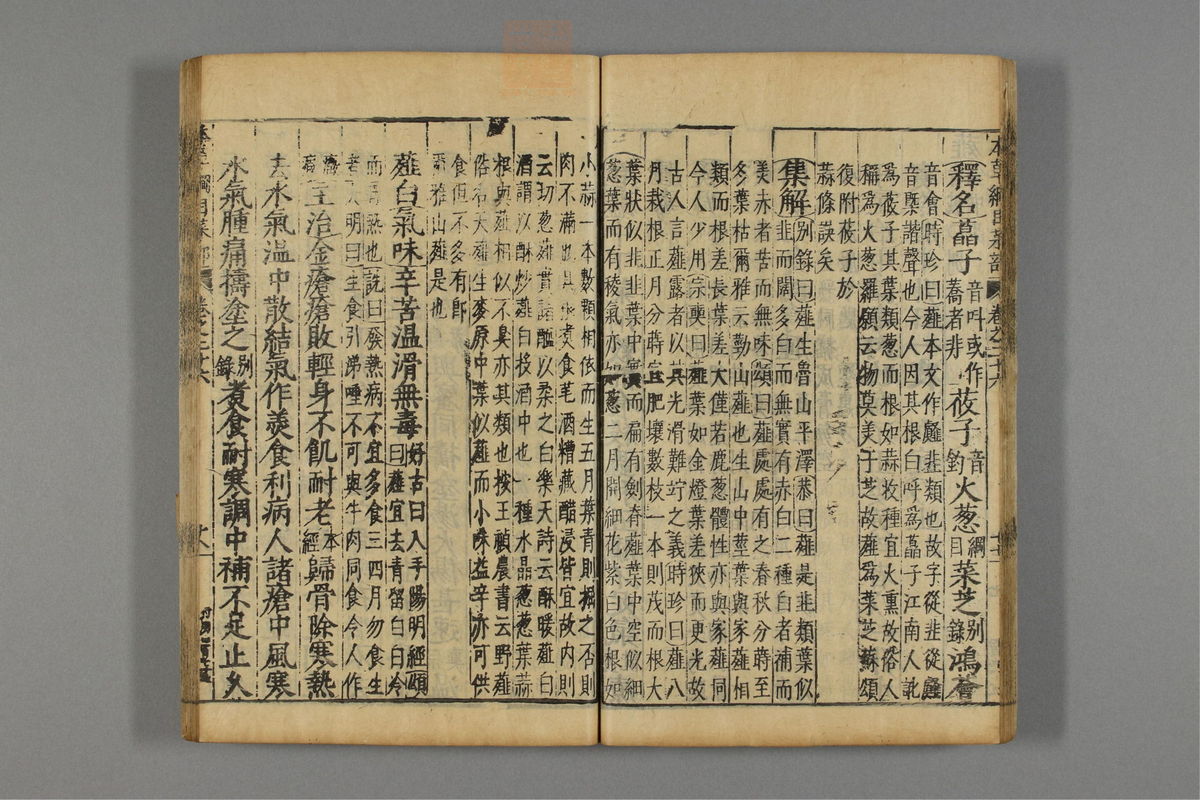 本草綱目菜部 卷之二十六
釋名藠子音叫或作蕎者非莜子音釣火葱綱目菜芝別錄鴻薈
音會時珍曰薤本文作䪥韭類也故字從韭從䪥
音槩諧聲也今人因其根白呼爲藠子江南人訛
爲莜子其葉類葱而根如蒜收種宜火熏故俗人
稱爲火葱羅願云物莫美于芝故薤爲菜芝蘇頌
復附莜子於
蒜條誤矣
集解別錄曰薤生魯山平澤恭曰薤是韭類葉似
韭而闊多白而無實有赤白二種白者滿而
美赤者苦而無味頌曰薤處處有之春秋分蒔至
冬葉枯爾雅云勤山薤也生山中莖葉與家薤相
類而根差長葉差大僅若鹿葱體性亦與家薤同
今人少用宗奭曰薤葉如金燈葉差狹而更光故
古人言薤露者以其光滑難竚之義時珍曰薤八
月栽根正月分蒔宜肥壤數枝一本則茂而根大
葉狀似韭韭葉中實而扁有劍脊薤葉中空似細
葱葉而有稜氣亦如葱二月開細花紫白色根如
小蒜一本數顆相依而生五月葉青則掘之否則
肉不滿也其根煑食芼酒糟藏醋浸皆宜故内則
云切葱薤實諸醯以柔之白樂天詩云酥暖薤白
酒謂以酥炒薤白投酒中也一種水晶葱葱葉蒜
根與薤相似不臭亦其類也按王禎農書云野薤
俗名天薤生麥原中葉似薤而小味益辛亦可供
食但不多有卽
爾雅山薤是也
薤白氣味辛苦温滑無毒好古曰入手陽明經頌曰薤宜去青留白白冷
而青熱也詵曰發熱病不宜多食三四月勿食生
者大明曰生食引涕唾不可與牛肉同食令人作
癥瘕主治金瘡瘡敗輕身不飢耐老本經歸骨除寒熱
去水氣温中散結氣作羮食利病人諸瘡中風寒
水氣腫痛擣塗之別錄煮食耐寒調中補不足止久